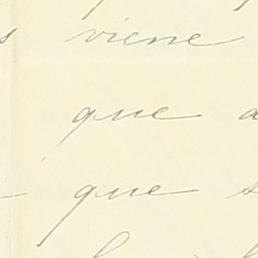 viene
que a
que s